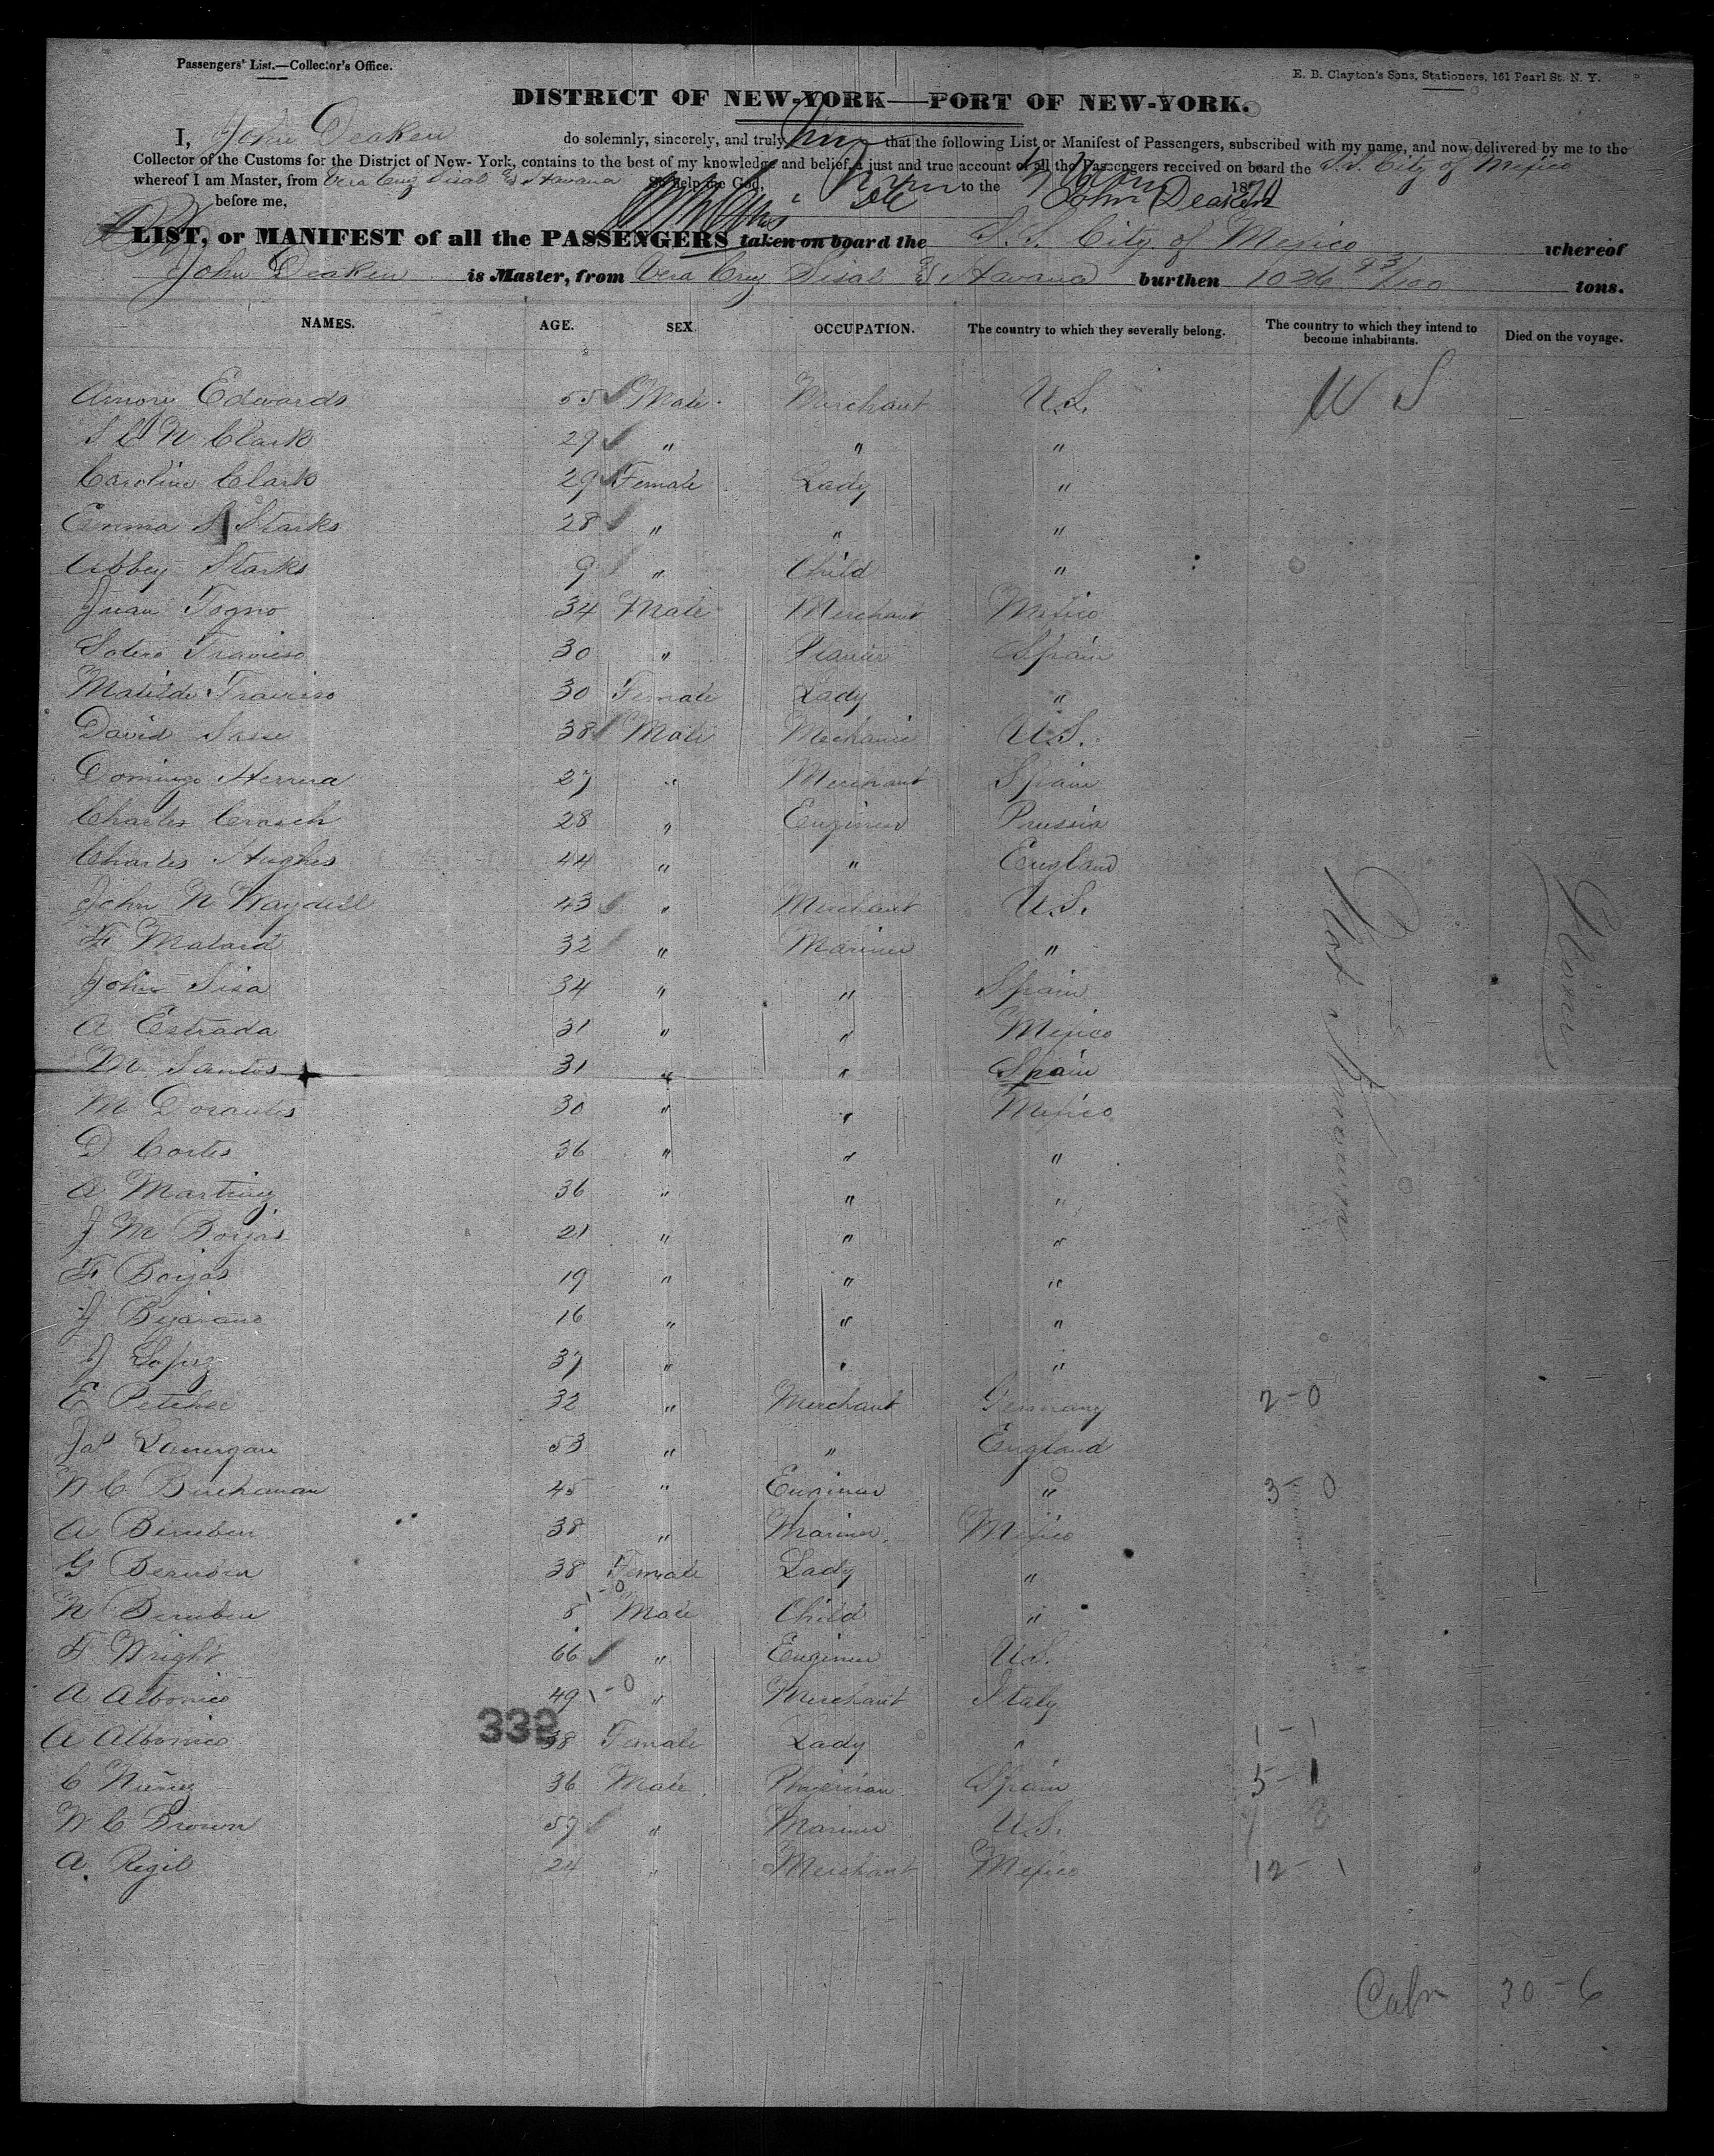 Passengers' List.—Collector's Office.
E. B. Clayton's Sons, Stationers, 161 Pearl St. N. Y.
DISTRICT OF NEW-YORK—PORT OF NEW-YORK.
I, John Deaken do solemnly, sincerely, and truly that the following List or Manifest of Passengers, subscribed with my name, and now delivered by me to the
Collector of the Customs for the District of New-York, contains to the best of my knowledge and belief, a just and true account of all the Passengers received on board the S.S. City of Mexico
whereof I am Master, from Vera Cruz Sisal & Havana So help me God, to the 187
before me, John Deaken
LIST, or MANIFEST of all the PASSENGERS taken on board the S. S. City of Mexico whereof
John Deaken is Master, from Vera Cruz Sisal & Havana burthen 1026 93/100 tons.
NAMES. AGE. SEX. OCCUPATION. The country to which they severally belong. The country to which they intend to become inhabitants. Died on the voyage.
Amory Edwards 55 Male Merchant U.S. U S
S C N Clark 29 " " "
Caroline Clark 29 Female Lady "
Emma S Starks 28 " " "
Abbey Starks 9 " Child "
Juan Togno 34 Male Merchant Mexico
Sotero Travieso 30 " Spain
Matilde Travieso 30 Female Lady "
David Sasse 38 Male Mechanic U.S.
Domingo Herrera 27 " Merchant Spain
Charles Crosch 28 " Engineer Prussia
Charles Hughes 44 " " England
John N Waydell 43 " Merchant U.S.
F Malard 32 " Mariner "
John Sisa 34 " " Spain
A Estrada 31 " " Mexico
M Santos 31 " " Spain
M Dorantes 30 " " Mexico
D Cortes 36 " " "
A Martinez 36 " " "
J M Borjas 21 " " "
F Borjas 19 " " "
J Bejarano 16 " " "
J Lopez 37 " " "
E Petcher 32 " Merchant Germany 2-0
Jas Lanergan 53 " " England
W C Buchanan 45 " Engineer " 3-0
A Beruben 38 " Mariner Mexico
G Beruben 38 Female Lady "
N Beruben 8 Male Child "
F Wright 66 " Engineer U.S.
A Albonico 49 1-0 " Merchant Italy
332
A Albonico 38 Female Lady " 1-1
C Nuñez 36 Male Physician Spain 5-1
W C Brown 57 " Mariner U.S.
A. Regil 24 " Merchant Mexico 12-1
Cabn 30-6